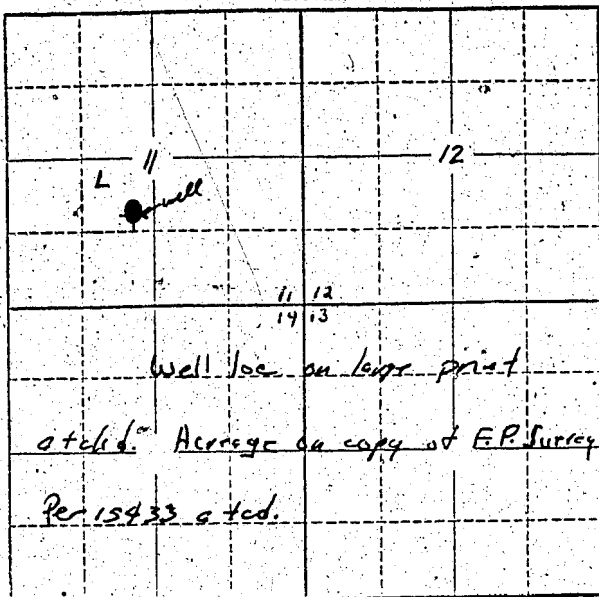 11
12
L
well
11 12
14 13
Well loc on large print
atchd. Acreage on copy of E.P. Survey
Per 15433 atcd.